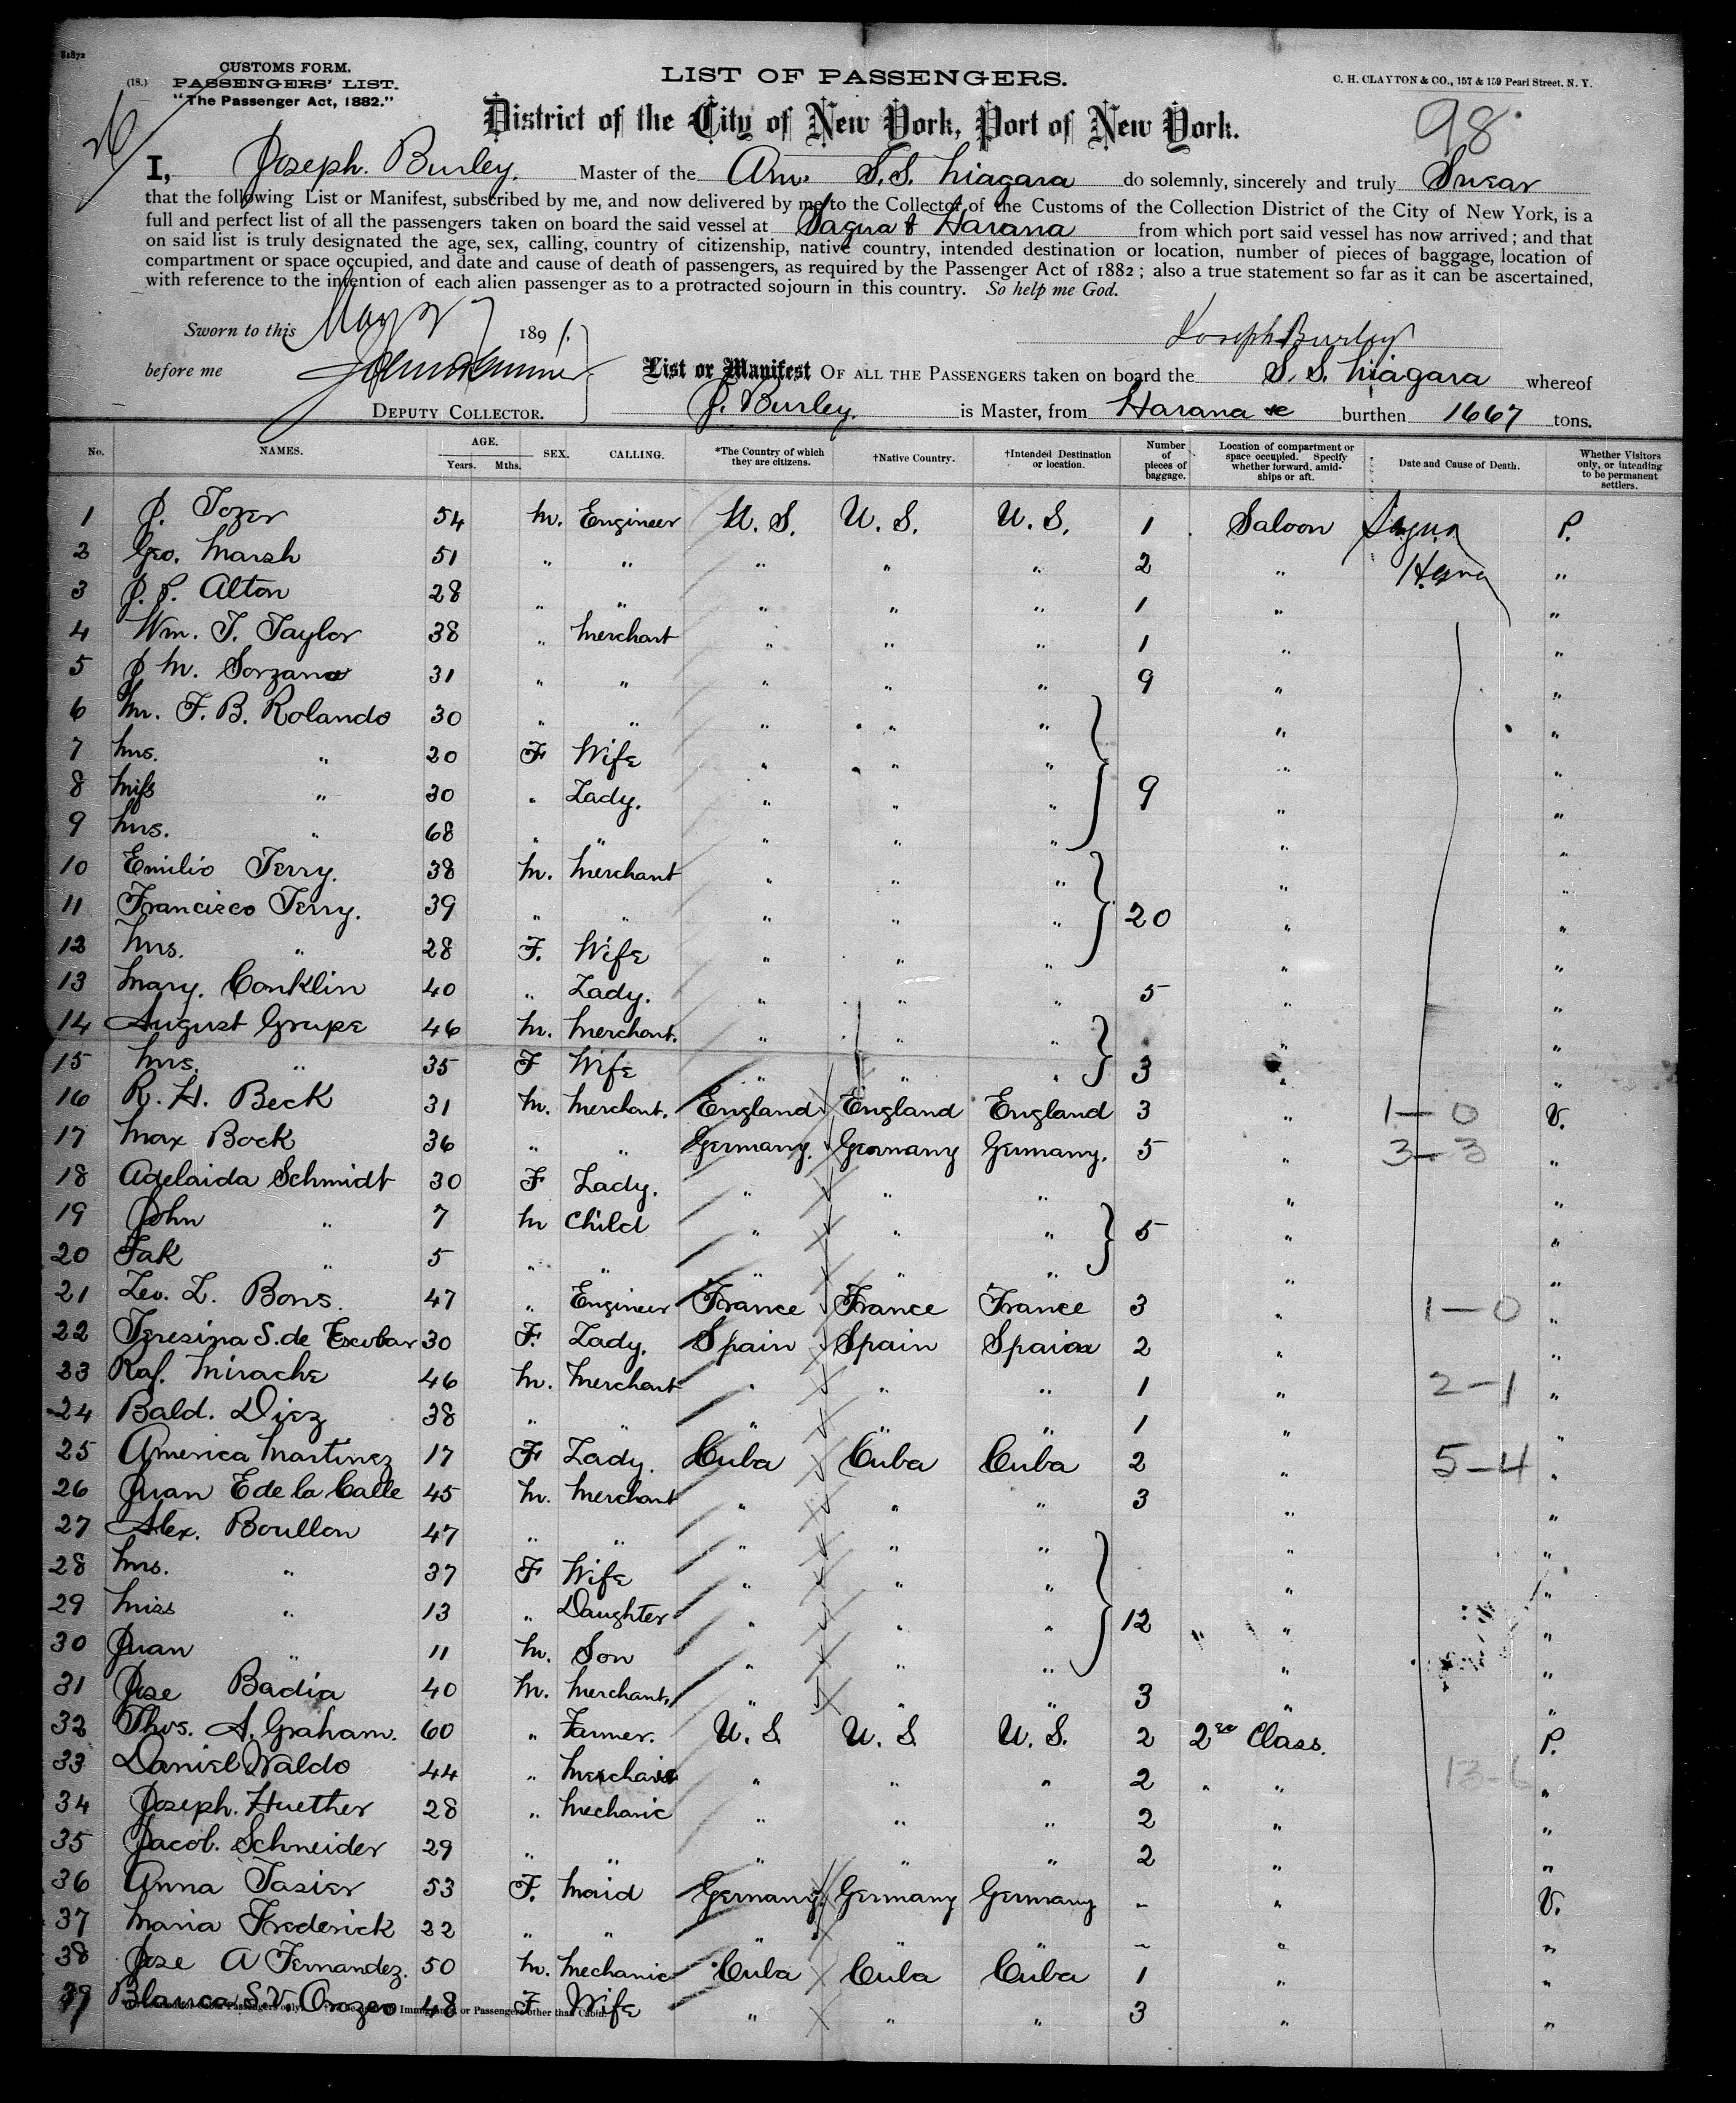 81872
CUSTOMS FORM.
(18.) PASSENGERS' LIST.
"The Passenger Act, 1882."
LIST OF PASSENGERS.
C. H. CLAYTON & CO., 157 & 159 Pearl Street, N. Y.
District of the City of New York, Port of New York.
98
I, Joseph. Burley. Master of the Am. S.S. Niagara do solemnly, sincerely and truly Swear
that the following List or Manifest, subscribed by me, and now delivered by me to the Collector of the Customs of the Collection District of the City of New York, is a
full and perfect list of all the passengers taken on board the said vessel at Sagua & Havana from which port said vessel has now arrived; and that
on said list is truly designated the age, sex, calling, country of citizenship, native country, intended destination or location, number of pieces of baggage, location of
compartment or space occupied, and date and cause of death of passengers, as required by the Passenger Act of 1882; also a true statement so far as it can be ascertained,
with reference to the intention of each alien passenger as to a protracted sojourn in this country. So help me God.
Sworn to this May 27 1891.
Joseph Burley
before me
List or Manifest OF ALL THE PASSENGERS taken on board the S. S. Niagara whereof
DEPUTY COLLECTOR.
J. Burley. is Master, from Havana &c burthen 1667 tons.
No. NAMES. AGE. Years. Mths. SEX. CALLING. *The Country of which they are citizens. †Native Country. †Intended Destination or location. Number of pieces of baggage. Location of compartment or space occupied. Specify whether forward, amidships or aft. Date and Cause of Death. Whether Visitors only, or intending to be permanent settlers.
1 J. Tozer 54 M. Engineer U. S. U. S. U. S. 1 Saloon Sagua P.
2 Geo. Marsh 51 " " " " " 2 " Havana "
3 J. P. Alton 28 " " " " " 1 " "
4 Wm. T. Taylor 38 " Merchant " " " 1 " "
5 J M. Sorzano 31 " " " " " 9 " "
6 Mr. F. B. Rolando 30 " " " " " " "
7 Mrs. " 20 F Wife " " " " "
8 Miss " 30 " Lady. " " " 9 " "
9 Mrs. " 68 " " " " " " "
10 Emilio Terry. 38 M. Merchant " " " " "
11 Francisco Terry. 39 " " " " " 20 " "
12 Mrs. " 28 F. Wife " " " " "
13 Mary. Conklin 40 " Lady. " " " 5 " "
14 August Grupe 46 M. Merchant. " " " " "
15 Mrs. " 35 F Wife " " " 3 " "
16 R. H. Beck 31 M. Merchant. England England England 3 " 1-0 V.
17 Max Bock 36 " " Germany. Germany Germany. 5 " 3-3 "
18 Adelaida Schmidt 30 F Lady. " " " " "
19 John " 7 M Child " " " 5 " "
20 Fak " 5 " " " " " " "
21 Leo. L. Bons. 47 " Engineer France France France 3 " 1-0 "
22 Teresina S. de Escobar 30 F. Lady. Spain Spain Spain 2 " "
23 Raf. Mirache 46 M. Merchant " " " 1 " 2-1 "
24 Bald. Diez 38 " " " " " 1 " "
25 America Martinez 17 F Lady. Cuba Cuba Cuba 2 " 5-4 "
26 Juan E de la Calle 45 M. Merchant " " " 3 " "
27 Alex. Boullon 47 " " " " " " "
28 Mrs. " 37 F Wife " " " " "
29 Miss " 13 " Daughter " " " 12 " "
30 Juan " 11 M. Son " " " " "
31 Jose Badia 40 M. Merchant. " " " 3 " "
32 Thos. A. Graham. 60 " Farmer. U. S. U. S. U. S. 2 2nd Class. P.
33 Daniel Waldo 44 " " " " 2 " " 13-6 "
34 Joseph. Huether 28 " Mechanic " " " 2 " "
35 Jacob. Schneider 29 " " " " " 2 " "
36 Anna Tasier 53 F. Maid Germany. Germany Germany - " V.
37 Maria Frederick 22 " " " " " - " "
38 Jose A Fernandez. 50 M. Mechanic Cuba Cuba Cuba 1 " "
39 Blanca S. V. Orozco 48 F Wife " " " 3 " "
Immigrants or Passengers other than Cabin.